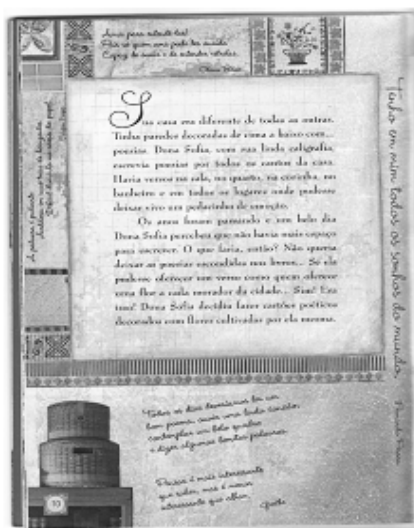 Amai para entendê-las!
Pois só quem ama pode ter ouvido
Capaz de ouvir e de entender estrelas.
Olavo Bilac
Sua casa era diferente de todas as outras.
Tinha paredes decoradas de cima a baixo com...
poesias. Dona Sofia, com sua linda caligrafia,
escrevia poesias por todos os cantos da casa.
Havia versos na sala, no quarto, na cozinha, no
banheiro e em todos os lugares onde pudesse
deixar vivo um pedacinho de emoção.
Os anos foram passando e um belo dia
Dona Sofia percebeu que não havia mais espaço
para escrever. O que faria, então? Não queria
deixar as poesias escondidas nos livros... Se ela
pudesse oferecer um verso como quem oferece
uma flor a cada morador da cidade... Sim! Era
isso! Dona Sofia decidiu fazer cartões poéticos
decorados com flores cultivadas por ela mesma.
Tenho em mim todos os sonhos do mundo.
Fernando Pessoa
Todos os dias deveríamos ler um
bom poema, ouvir uma linda canção,
contemplar um belo quadro
e dizer algumas bonitas palavras.
Pensar é mais interessante
que saber, mas é menos
interessante que olhar.
Goethe
10